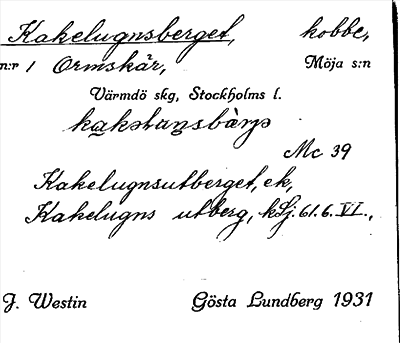 Kakelugnsberget, kobbe,
n:r 1 Ormskär, Möja s:n
Värmdö skg, Stockholms l.
Mc 39
Kakelugnsutberget, ek,
Kakelugns utberg, kSj. 61.6.VI.,
J. Westin Gösta Lundberg 1931